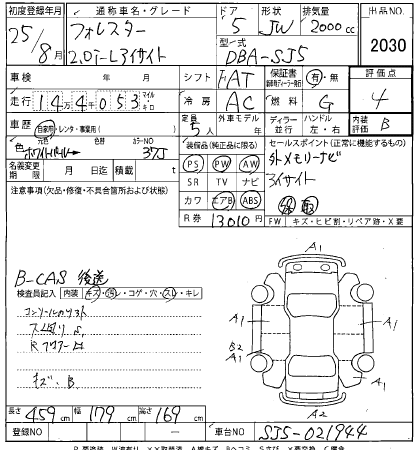 初度登録年月 通称車名・グレード ドア 形状 排気量 出品NO.
25/8月 フォレスター 2.0i-Lアイサイト 5 JW 2000cc
型式 DBA-SJ5 2030
車検 年 月 シフト FAT 保証書 有・無 評価点
走行 14万4千053 マイル キロ 冷房 AC 燃料 G 4
車歴 自家用・レンタ・事業用( ) 定員 5人 外車モデル ディーラー 並行 ハンドル 左・右 内装評価 B
色 元色 色替 カラーNO
ホワイトパール 37J
装備品(純正品に限る) セールスポイント(正常に機能するもの)
PS PW AW 外メモリーナビ
名義変更期限 月 日迄 積載 t SR TV ナビ アイサイト
注意事項(欠品・修復・不具合箇所および状態) カワ エアB ABS 保 取
R券 13010円 FW キズ・ヒビ割・リペア跡・X要
B-CAS 後送
検査員記入 内装 キズ・汚レ・コゲ・穴・スレ・キレ
キズ、B
A1
A1 A1
A1
B2
A1
A1
A2
長さ 459cm 幅 179cm 高さ 169cm
登録NO ー 車台NO SJ5-021944